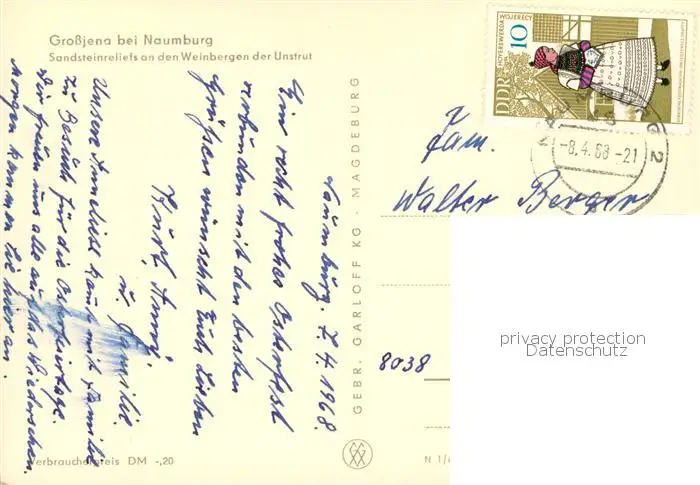 Großjena bei Naumburg
Sandsteinreliefs an den Weinbergen der Unstrut
Naumburg. 7.4.1968.
Ein recht frohes Osterfest
verbunden mit den besten
Grüßen wünscht Euch Lieben
Kurt, Anni,
u. Familie.
Unsere Anneliese kommt mit Familie
zu Besuch für die Osterfeiertage.
Wir freuen uns alle auf das Wiedersehen.
Morgen kommen sie hier an.
Verbraucherpreis DM -,20
GEBR. GARLOFF KG · MAGDEBURG
N 1/
HOYERSWERDA WOJERECY
10
DDR
-8.4.68-21
2
Fam.
Walter Berger
8038
privacy protection
Datenschutz